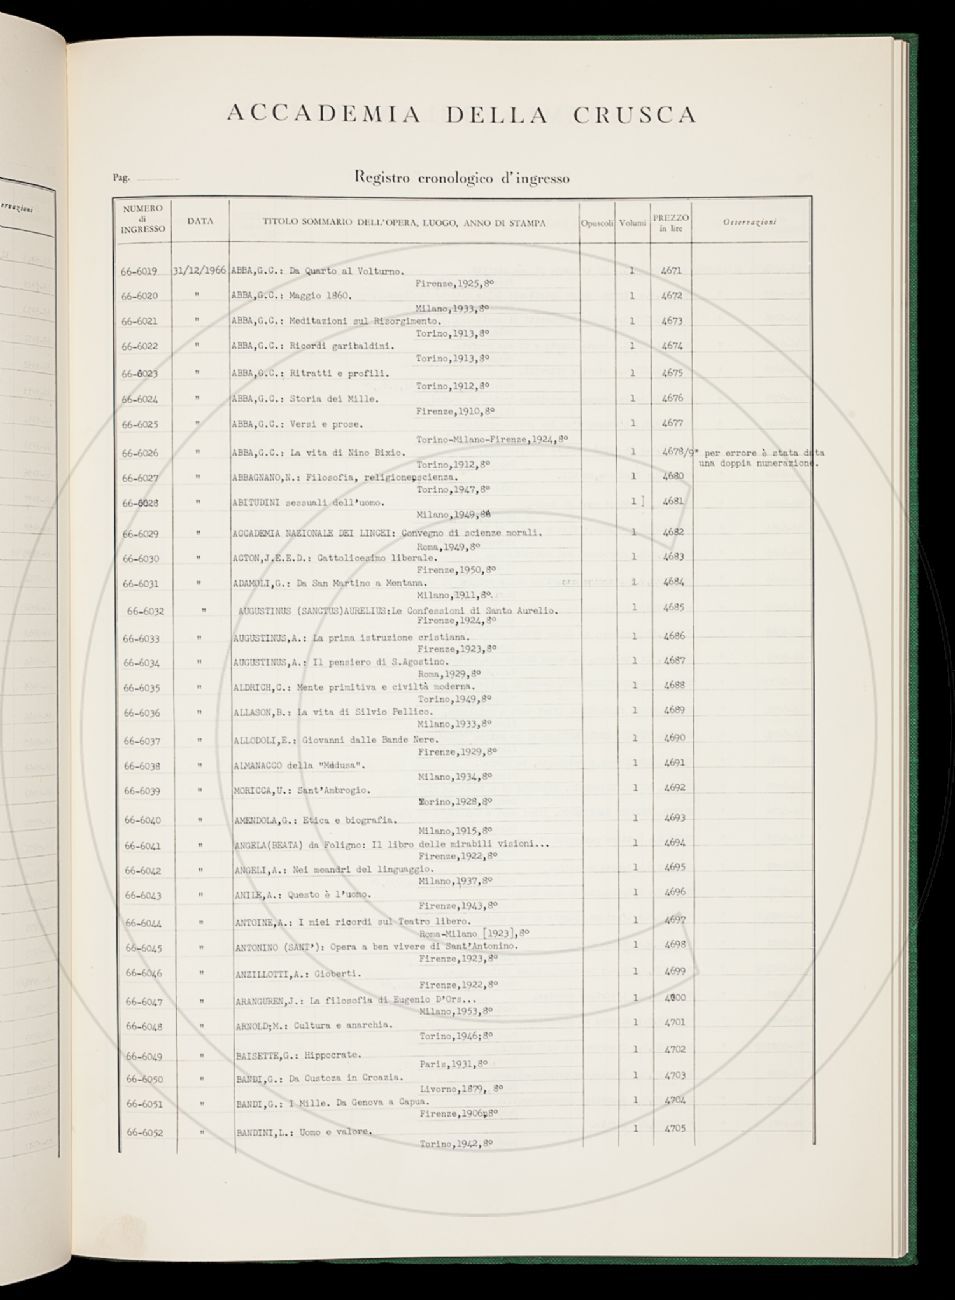 ervazioni
ACCADEMIA DELLA CRUSCA
Pag. Registro cronologico d'ingresso
NUMERO di INGRESSO DATA TITOLO SOMMARIO DELL'OPERA, LUOGO, ANNO DI STAMPA Opuscoli Volumi PREZZO in lire Osservazioni
66-6019 31/12/1966 ABBA,G.C.: Da Quarto al Volturno. 1 4671
Firenze,1925,8°
66-6020 " ABBA,G.C.: Maggio 1860. 1 4672
Milano,1933,8°
66-6021 " ABBA,G.C.: Meditazioni sul Risorgimento. 1 4673
Torino,1913,8°
66-6022 " ABBA,G.C.: Ricordi garibaldini. 1 4674
Torino,1913,8°
66-6023 " ABBA,G.C.: Ritratti e profili. 1 4675
Torino,1912,8°
66-6024 " ABBA,G.C.: Storia dei Mille. 1 4676
Firenze,1910,8°
66-6025 " ABBA,G.C.: Versi e prose. 1 4677
Torino-Milano-Firenze,1924,8°
66-6026 " ABBA,G.C.: La vita di Nino Bixio. 1 4678/9* per errore è stata data
Torino,1912,8° una doppia numerazione.
66-6027 " ABBAGNANO,N.: Filosofia, religione,scienza. 1 4680
Torino,1947,8°
66-6028 " ABITUDINI sessuali dell'uomo. 1 ] 4681
Milano,1949,8°
66-6029 " ACCADEMIA NAZIONALE DEI LINCEI: Convegno di scienze morali. 1 4682
Roma,1949,8°
66-6030 " ACTON,J.E.E.D.: Cattolicesimo liberale. 1 4683
Firenze,1950,8°
66-6031 " ADAMOLI,G.: Da San Martino a Mentana. 1 4684
Milano,1911,8°.
66-6032 " AUGUSTINUS (SANCTUS)AURELIUS:Le Confessioni di Santo Aurelio. 1 4685
Firenze,1924,8°
66-6033 " AUGUSTINUS,A.: La prima istruzione cristiana. 1 4686
Firenze,1923,8°
66-6034 " AUGUSTINUS,A.: Il pensiero di S.Agostino. 1 4687
Roma,1929,8°
66-6035 " ALDRICH,C.: Mente primitiva e civiltà moderna. 1 4688
Torino,1949,8°
66-6036 " ALLASON,B.: La vita di Silvio Pellico. 1 4689
Milano,1933,8°
66-6037 " ALLODOLI,E.: Giovanni dalle Bande Nere. 1 4690
Firenze,1929,8°
66-6038 " ALMANACCO della "Medusa". 1 4691
Milano,1934,8°
66-6039 " MORICCA,U.: Sant'Ambrogio. 1 4692
Torino,1928,8°
66-6040 " AMENDOLA,G.: Etica e biografia. 1 4693
Milano,1915,8°
66-6041 " ANGELA(BEATA) da Foligno: Il libro delle mirabili visioni... 1 4694
Firenze,1922,8°
66-6042 " ANGELI,A.: Nei meandri del linguaggio. 1 4695
Milano,1937,8°
66-6043 " ANILE,A.: Questo è l'uomo. 1 4696
Firenze,1943,8°
66-6044 " ANTOINE,A.: I miei ricordi sul Teatro libero. 1 4697
Roma-Milano [1923],8°
66-6045 " ANTONINO (SANT'): Opera a ben vivere di Sant'Antonino. 1 4698
Firenze,1923,8°
66-6046 " ANZILLOTTI,A.: Gioberti. 1 4699
Firenze,1922,8°
66-6047 " ARANGUREN,J.: La filosofia di Eugenio D'Ors... 1 4800
Milano,1953,8°
66-6048 " ARNOLD;M.: Cultura e anarchia. 1 4701
Torino,1946;8°
66-6049 " BAISETTE,G.: Hippocrate. 1 4702
Paris,1931,8°
66-6050 " BANDI,G.: Da Custoza in Croazia. 1 4703
Livorno,1879, 8°
66-6051 " BANDI,G.: I Mille. Da Genova a Capua. 1 4704
Firenze,1906,8°
66-6052 " BANDINI,L.: Uomo e valore. 1 4705
Torino,1942,8°